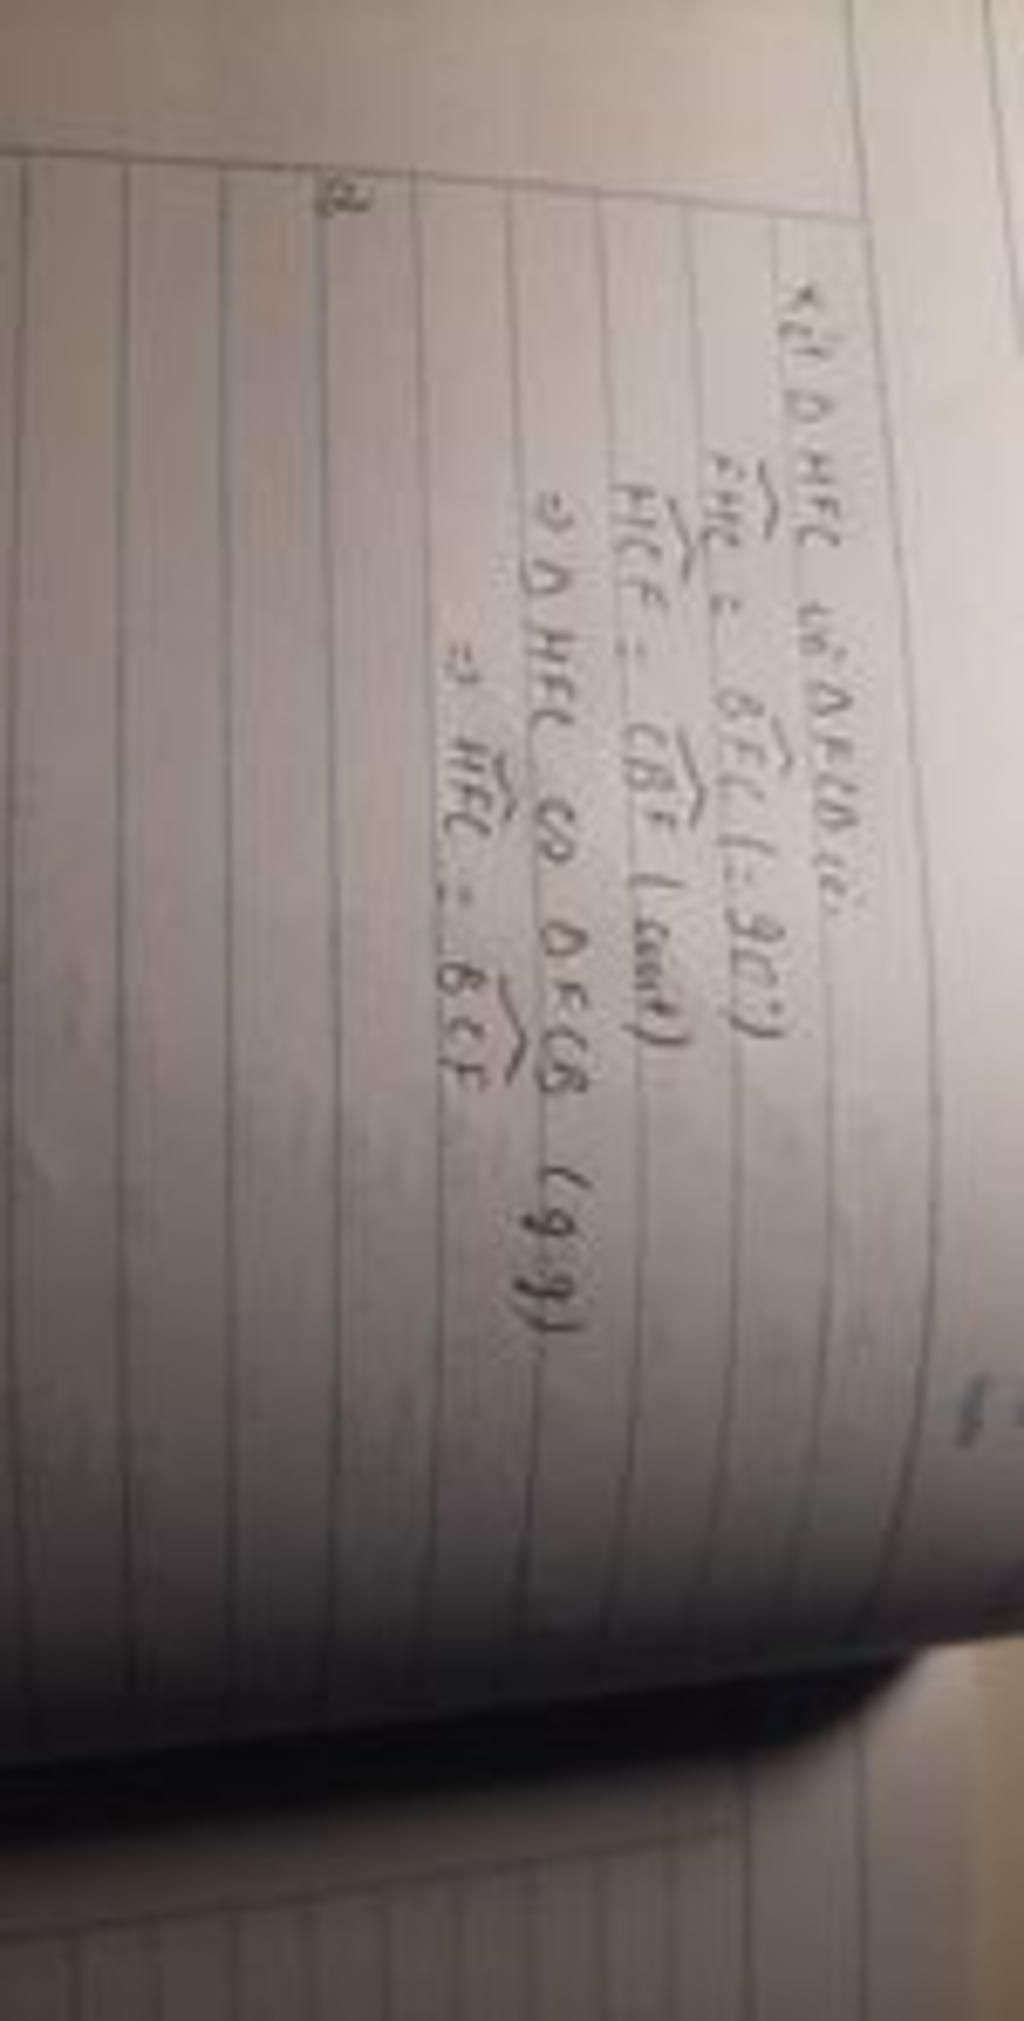 Xét Δ HFC và Δ FCB có:
$\widehat{FHC}$ = $\widehat{BFC}$ (= 90°)
$\widehat{HCF}$ = $\widehat{CBF}$ (cmt)
=> Δ HFC ∽ Δ FCB (g.g)
=> $\widehat{HFC}$ = $\widehat{BCF}$
d)